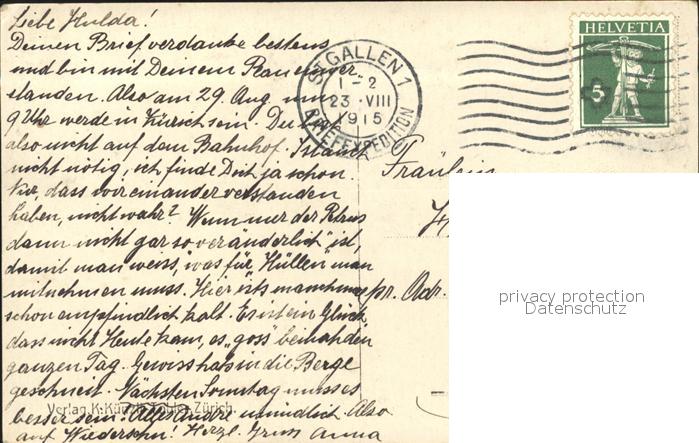 Liebe Hulda!
Deinen Brief verdanke bestens
und bin mit Deinem Plan einver-
standen. Also am 29. Aug. um
9 Uhr werde in Zürich sein. Du
also nicht auf dem Bahnhof. Ist auch
nicht nötig, ich finde Dich ja schon.
Nur, dass wir einander verstanden
haben, nicht wahr? Wenn nur der Petrus
dann nicht gar so veränderlich" ist,
damit man weiss, "was für Hüllen" man
mitnehmen muss. Hier ists manchmal
schon empfindlich kalt. Es ist ein Glück
dass nicht Heute kam, es "goss" beinah den
ganzen Tag. Gewiss hat's in die Berge
geschneit. Nächsten Sonntag muss es
besser sein. Alles Andre mündlich. Also
auf Wiedersehn! Herzl. Gruss Anna
Verlag K. Zürich.
ST. GALLEN 1
1-2
23. VIII
1915
BRIEFEXPEDITION
HELVETIA
5
Fräulein
pr. Adr.
privacy protection
Datenschutz